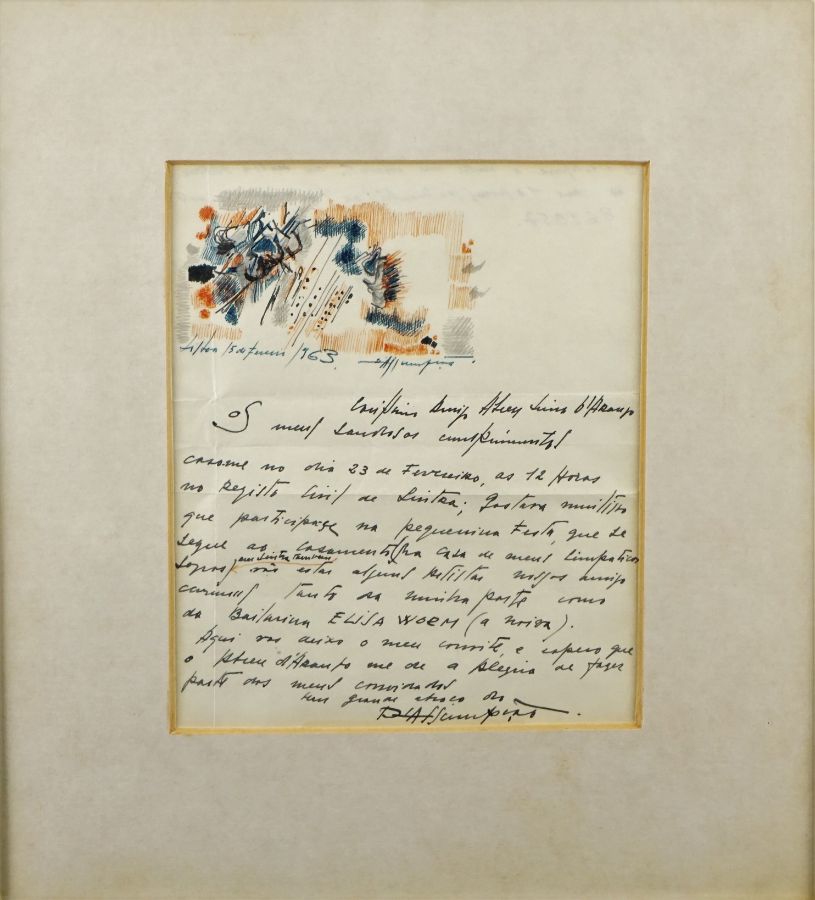 Lisboa 15 de Fevereiro / 963 D'Assumpção
Caríssimo Amigo Abreu Lima D'Araujo
Os meus saudosos cumprimentos
casome no dia 23 de Fevereiro, as 12 Horas
no Registo Civil de Sintra; Gostava muitissimo
que participasse na pequenina Festa, que se
segue ao casamento (na casa de meus simpaticos
em Sintra tambem
sogros) vão estar alguns Artistas nossos amigos
tanto da minha parte como
da Bailarina ELISA WORM (a noiva).
Aqui vos deixo o meu convite, e espero que
o Abreu d'Araujo me de a Alegria de fazer
parte dos meus convidados
um grande abraço do
D'Assumpção